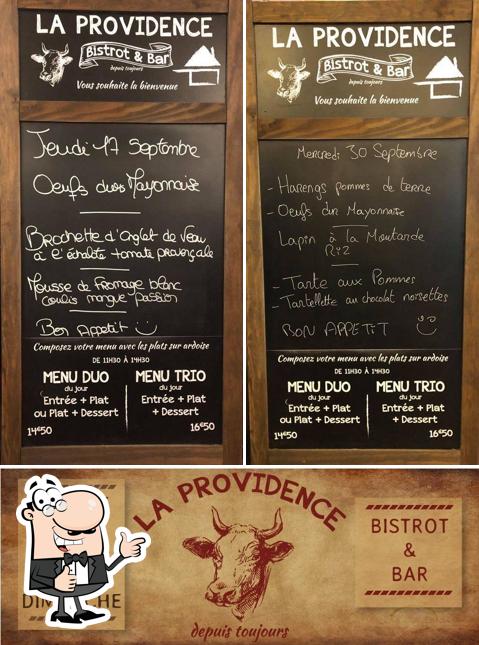 LA PROVIDENCE
Bistrot & Bar
depuis toujours
Vous souhaite la bienvenue
Jeudi 17 Septembre
Oeufs durs Mayonnaise
Brochette d'onglet de Veau
à l'échalote tomate provençale
Mousse de fromage blanc
coulis mangue passion
Bon Appetit
Composez votre menu avec les plats sur ardoise
DE 11H30 À 14H30
MENU DUO
du jour
Entrée + Plat
ou Plat + Dessert
14€50
MENU TRIO
du jour
Entrée + Plat
+ Dessert
16€50
LA PROVIDENCE
Bistrot & Bar
depuis toujours
Vous souhaite la bienvenue
Mercredi 30 Septembre
- Harengs pommes de terre
- Oeufs dur Mayonnaise
Lapin à la Moutarde
Riz
- Tarte aux Pommes
- Tartellette au chocolat noisettes
BON APPETIT
Composez votre menu avec les plats sur ardoise
DE 11H30 À 14H30
MENU DUO
du jour
Entrée + Plat
ou Plat + Dessert
14€50
MENU TRIO
du jour
Entrée + Plat
+ Dessert
16€50
LA PROVIDENCE
BISTROT
&
BAR
depuis toujours